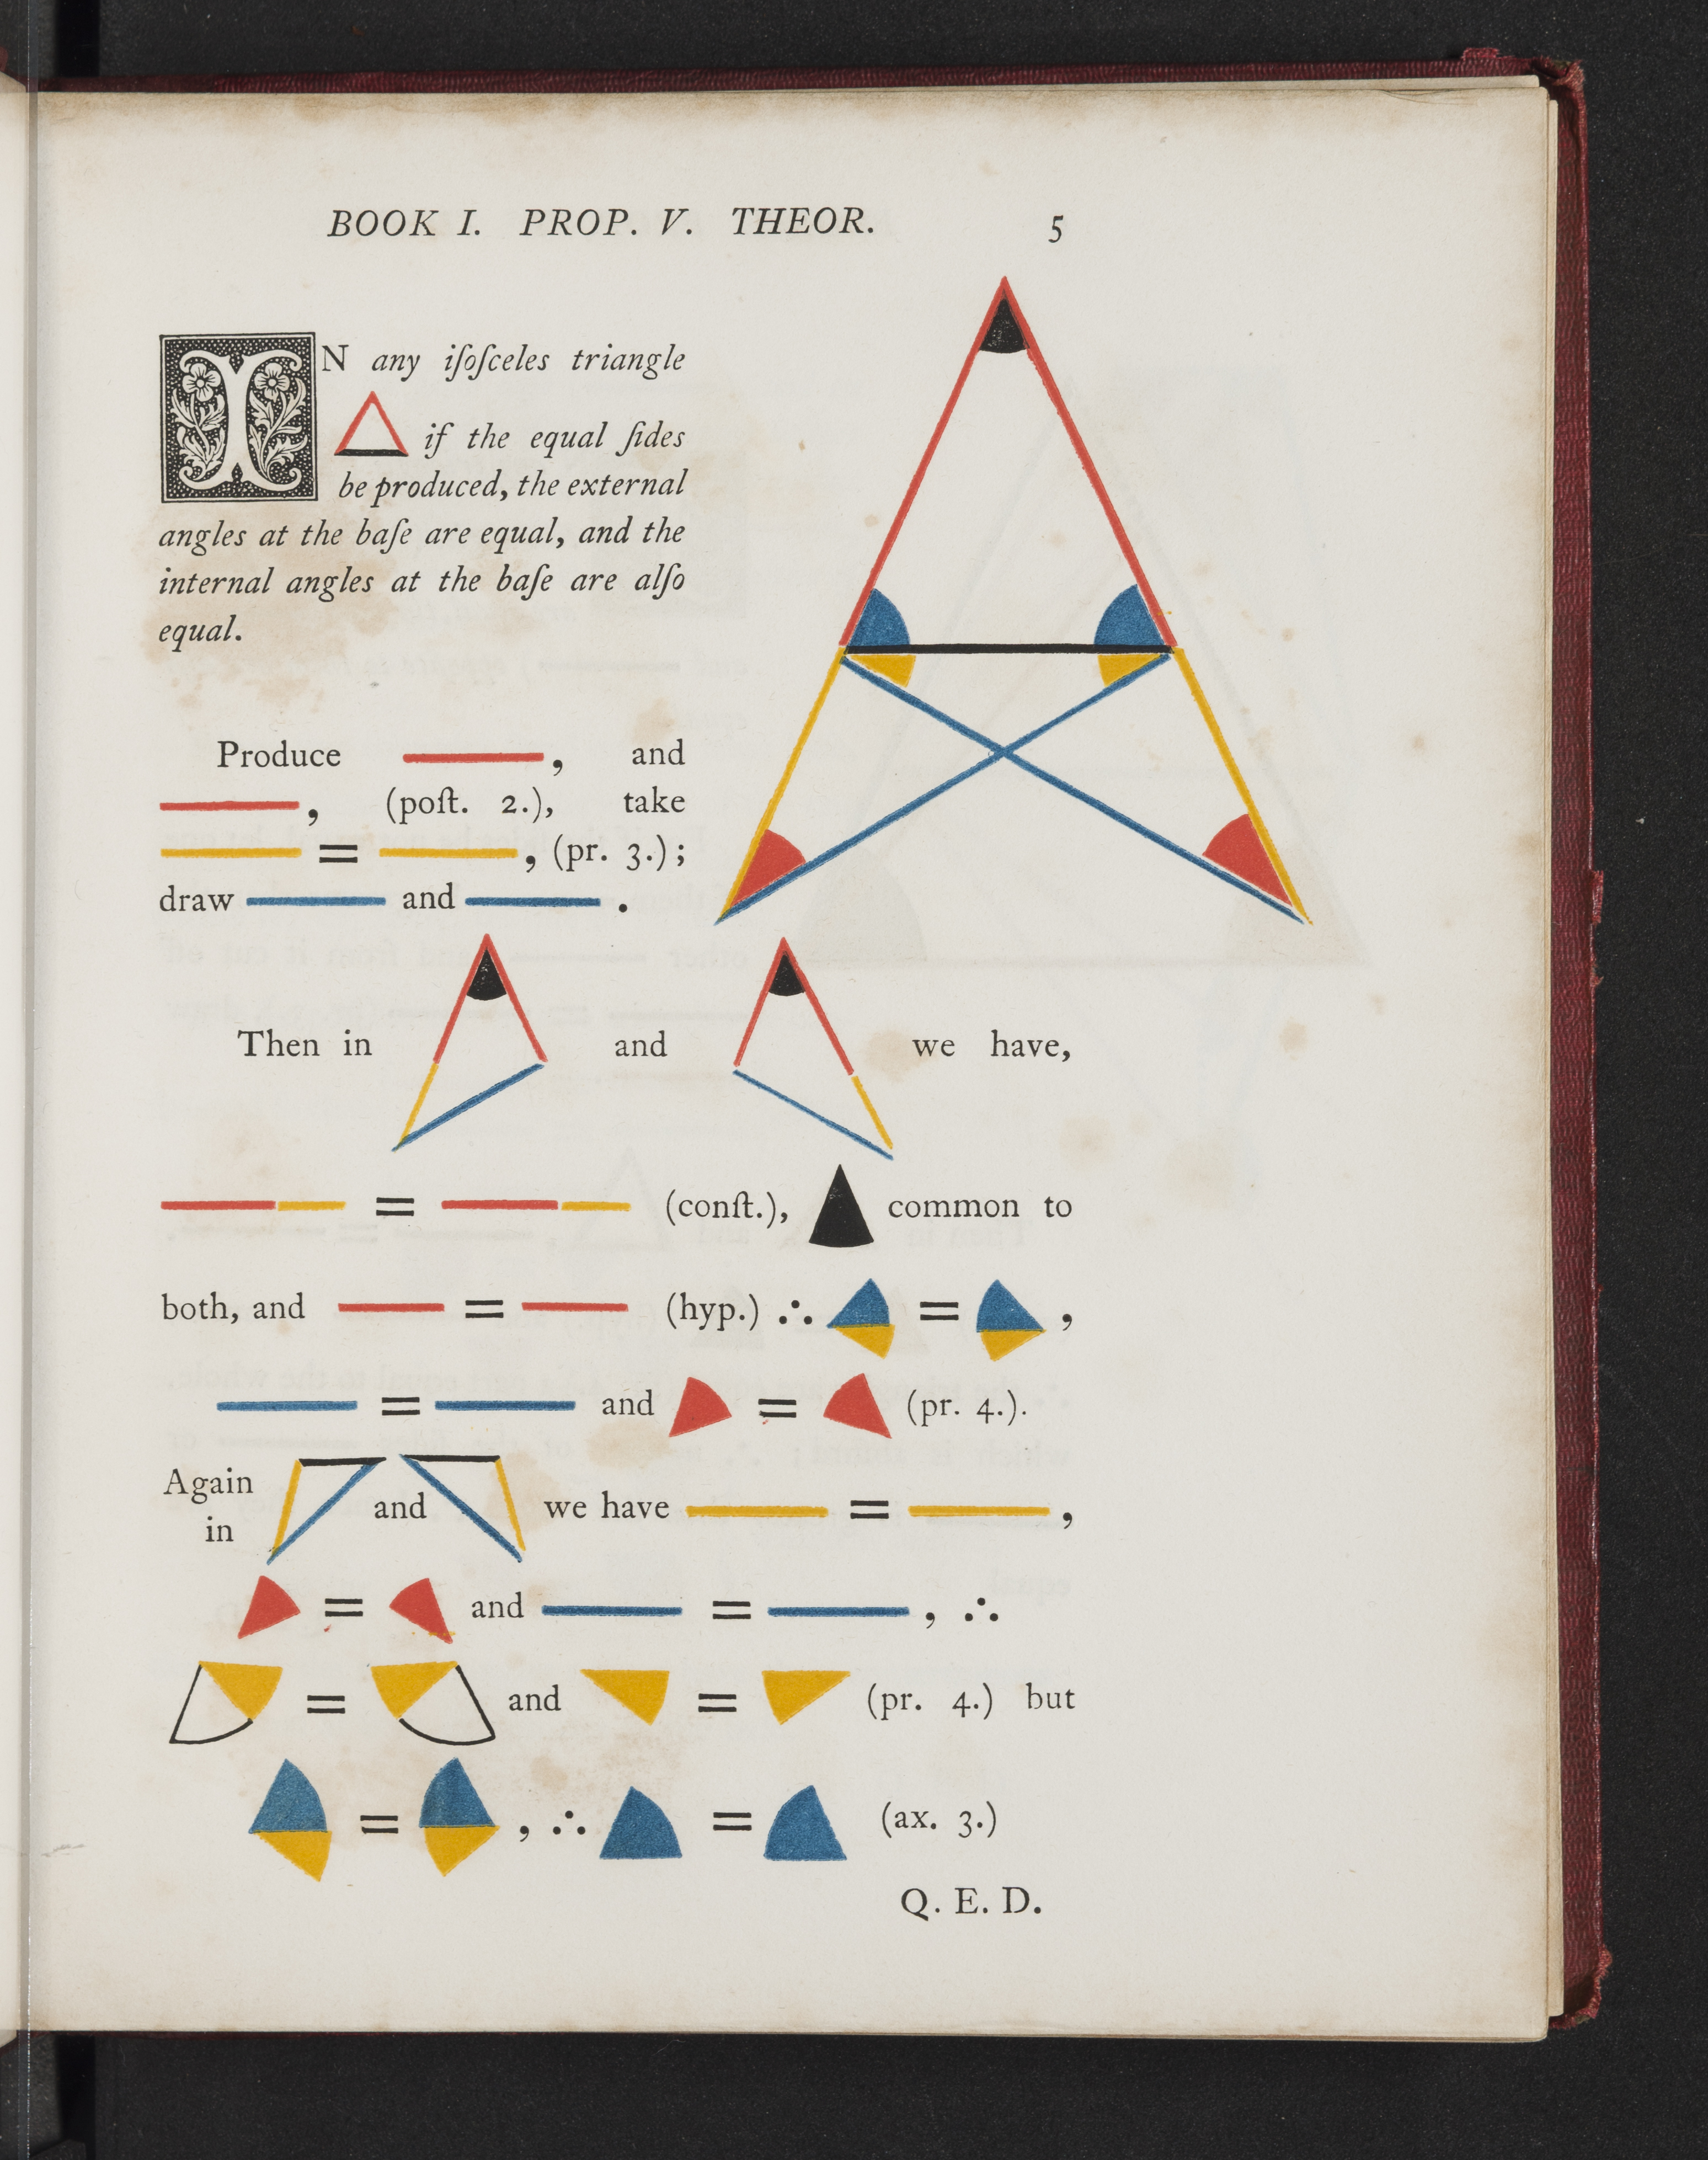 BOOK I. PROP. V. THEOR. 5
IN any iſoſceles triangle
if the equal ſides
be produced, the external
angles at the baſe are equal, and the
internal angles at the baſe are alſo
equal.
Produce , and
, (poſt. 2.), take
= , (pr. 3.);
draw and .
Then in and we have,
= (conſt.), common to
both, and = (hyp.) ∴ = ,
= and = (pr. 4.).
Again
in and we have = ,
= and = , ∴
= and = (pr. 4.) but
= , ∴ = (ax. 3.)
Q. E. D.